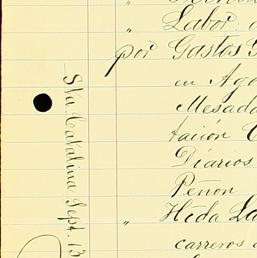 " 
" Labor
por Gastos
en Ago
Mesada
tación
Diarios
Peñon
" Hda La
carreros
Sta Catalina Sept. 13